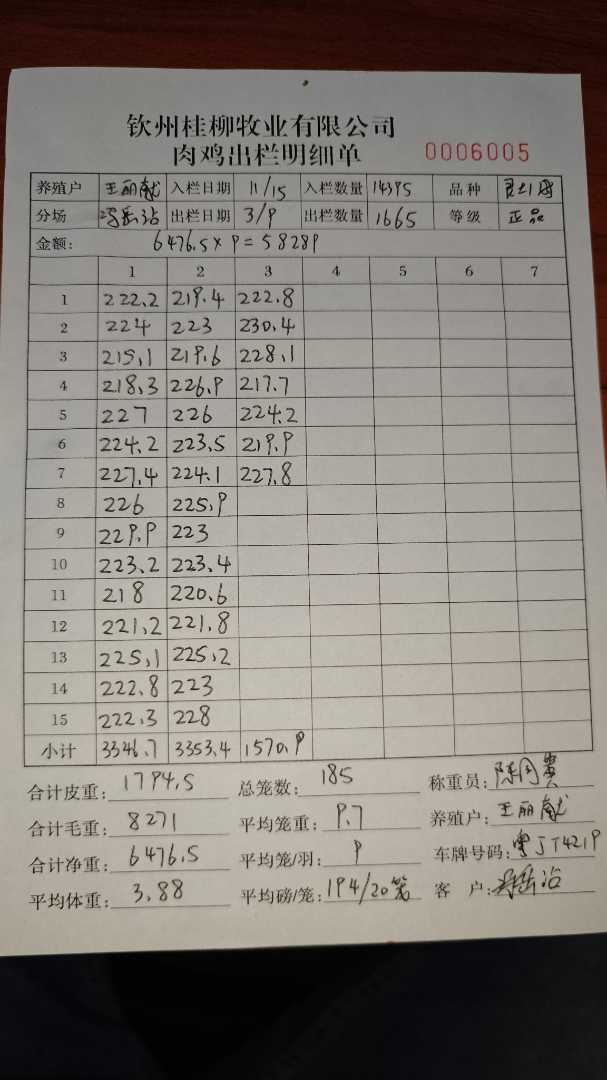 钦州桂柳牧业有限公司
肉鸡出栏明细单 0006005
养殖户 王丽献 入栏日期 11/15 入栏数量 14395 品种
分场 出栏日期 3/9 出栏数量 1665 等级 正品
金额: 6476.5×9=58289
1 2 3 4 5 6 7
1 222.2 219.4 222.8
2 224 223 230.4
3 215.1 219.6 228.1
4 218.3 226.9 217.7
5 227 226 224.2
6 224.2 223.5 219.9
7 227.4 224.1 227.8
8 226 225.9
9 229.9 223
10 223.2 223.4
11 218 220.6
12 221.2 221.8
13 225.1 225.2
14 222.8 223
15 222.3 228
小计 3346.7 3353.4 1570.9
合计皮重: 1794.5 总笼数: 185 称重员:
合计毛重: 8271 平均笼重: 9.7 养殖户: 王丽献
合计净重: 6476.5 平均笼/羽: 9 车牌号码: 粤JT4219
平均体重: 3.88 平均磅/笼: 194/20笼 客 户: